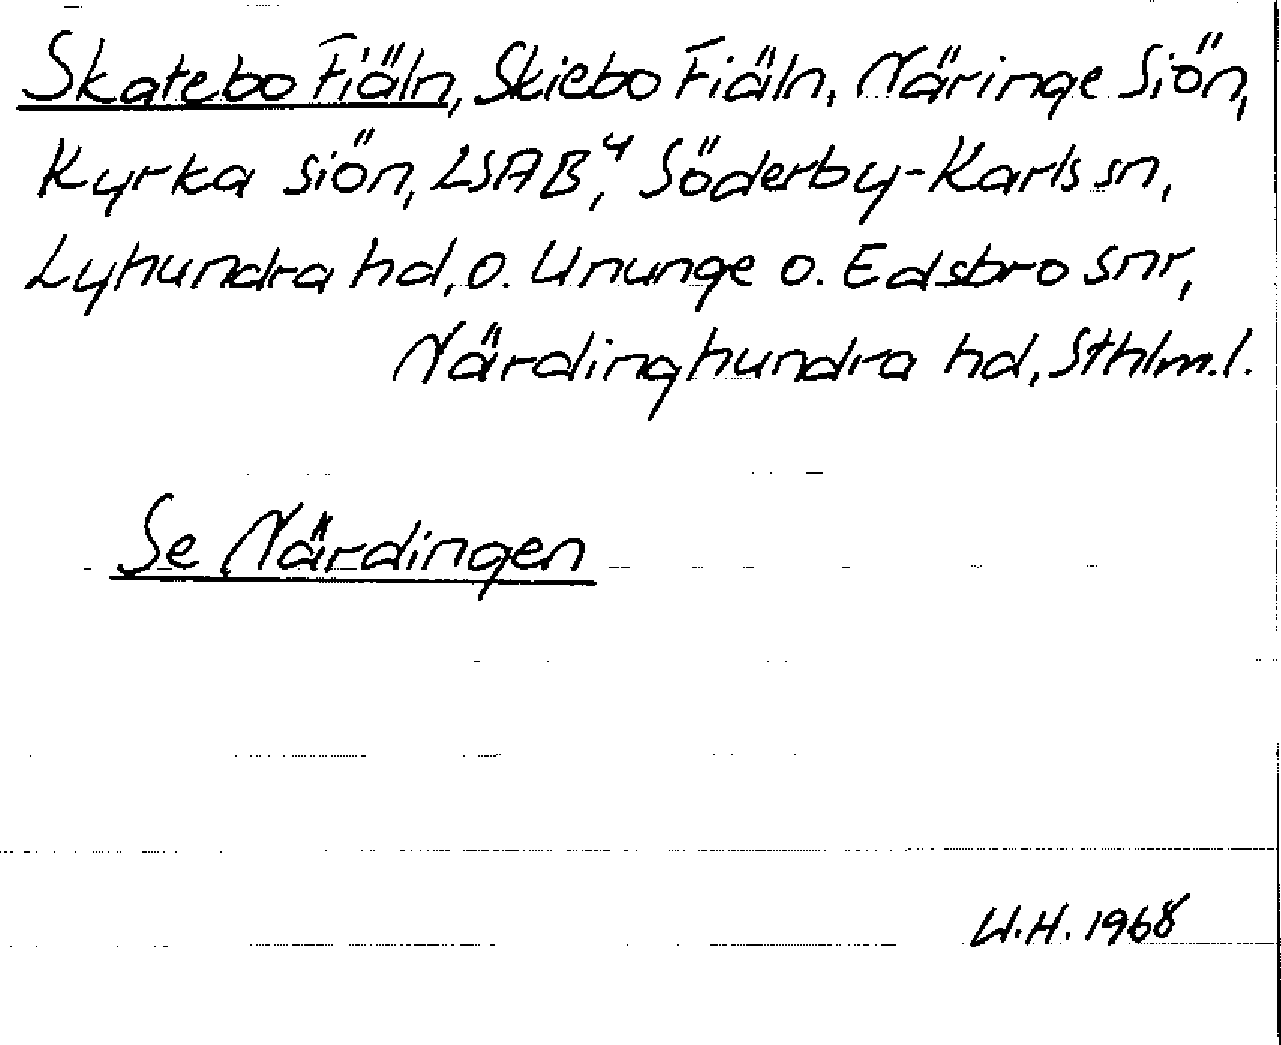 Skatebo Fiäln, Skiebo Fiäln, Näringe Siön,
Kyrka siön, LSAB,⁴ Söderby-Karls sn,
Lyhundra hd, o. Ununge o. Edsbro snr,
Närdinghundra hd, Sthlm.l.
Se Närdingen
U.H. 1968